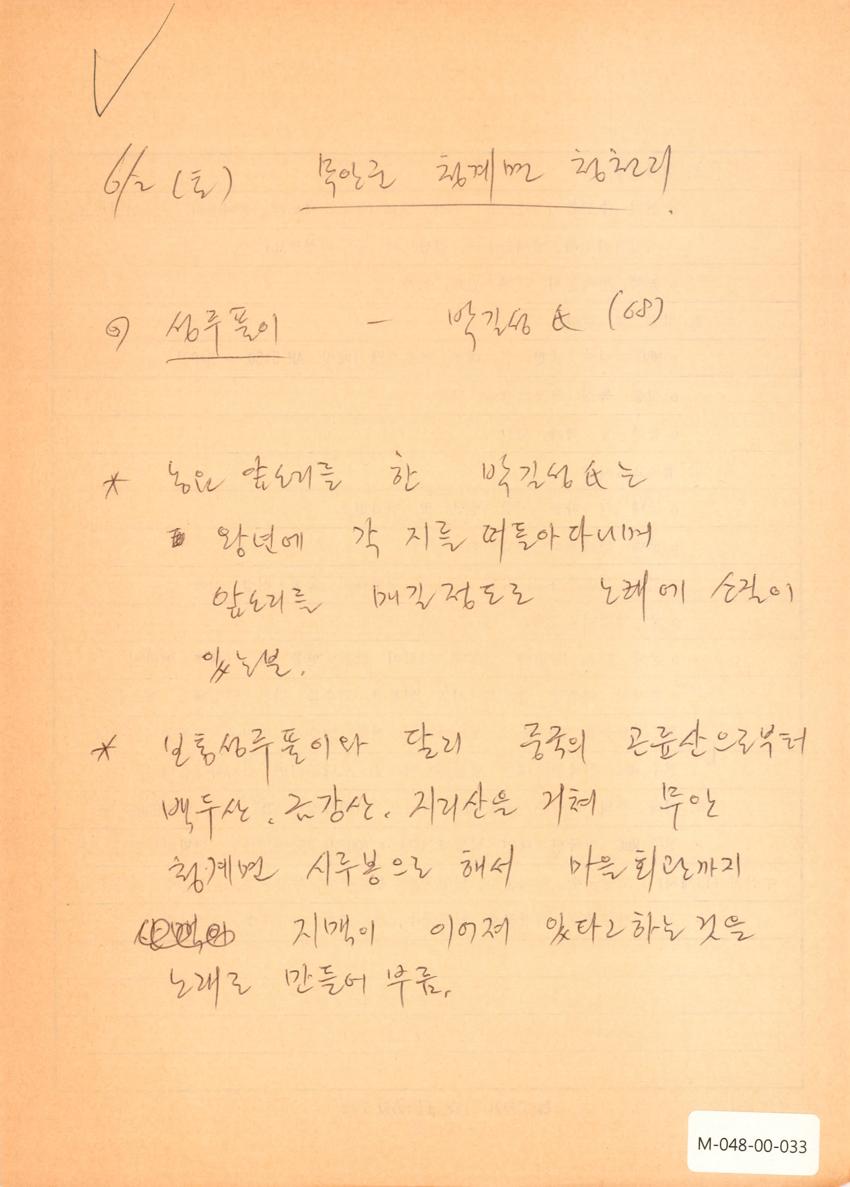 6/2 (토) 무안군 청계면 청천리
① 성주풀이 - 박길성 氏 (68)
* 농요 앞소리를 한 박길성 氏는
왕년에 각 지를 떠돌아다니며
앞소리를 매길정도로 노래에 소질이
있는분.
* 보통성주풀이와 달리 중국의 곤륜산으로부터
백두산, 금강산, 지리산을 거쳐 무안
청계면 시루봉으로 해서 마을회관까지
지맥이 이어져 있다고하는 것을
노래로 만들어 부름.
M-048-00-033